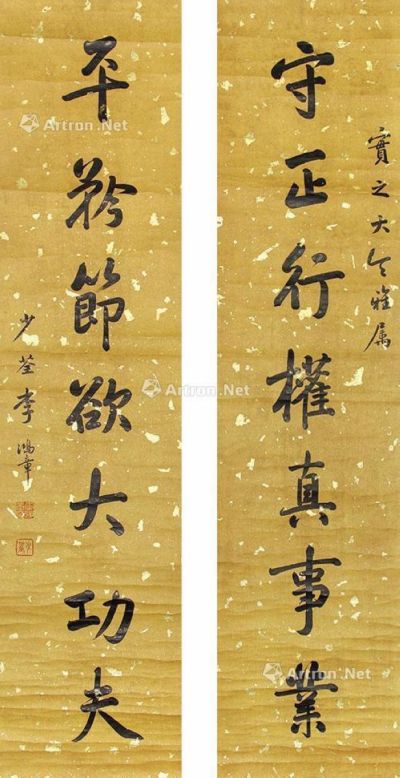 實之大令雅属
守正行權真事業
平矜節欲大功夫
少荃李鴻章
Artron.Net
Artron.Net
Artron.Net